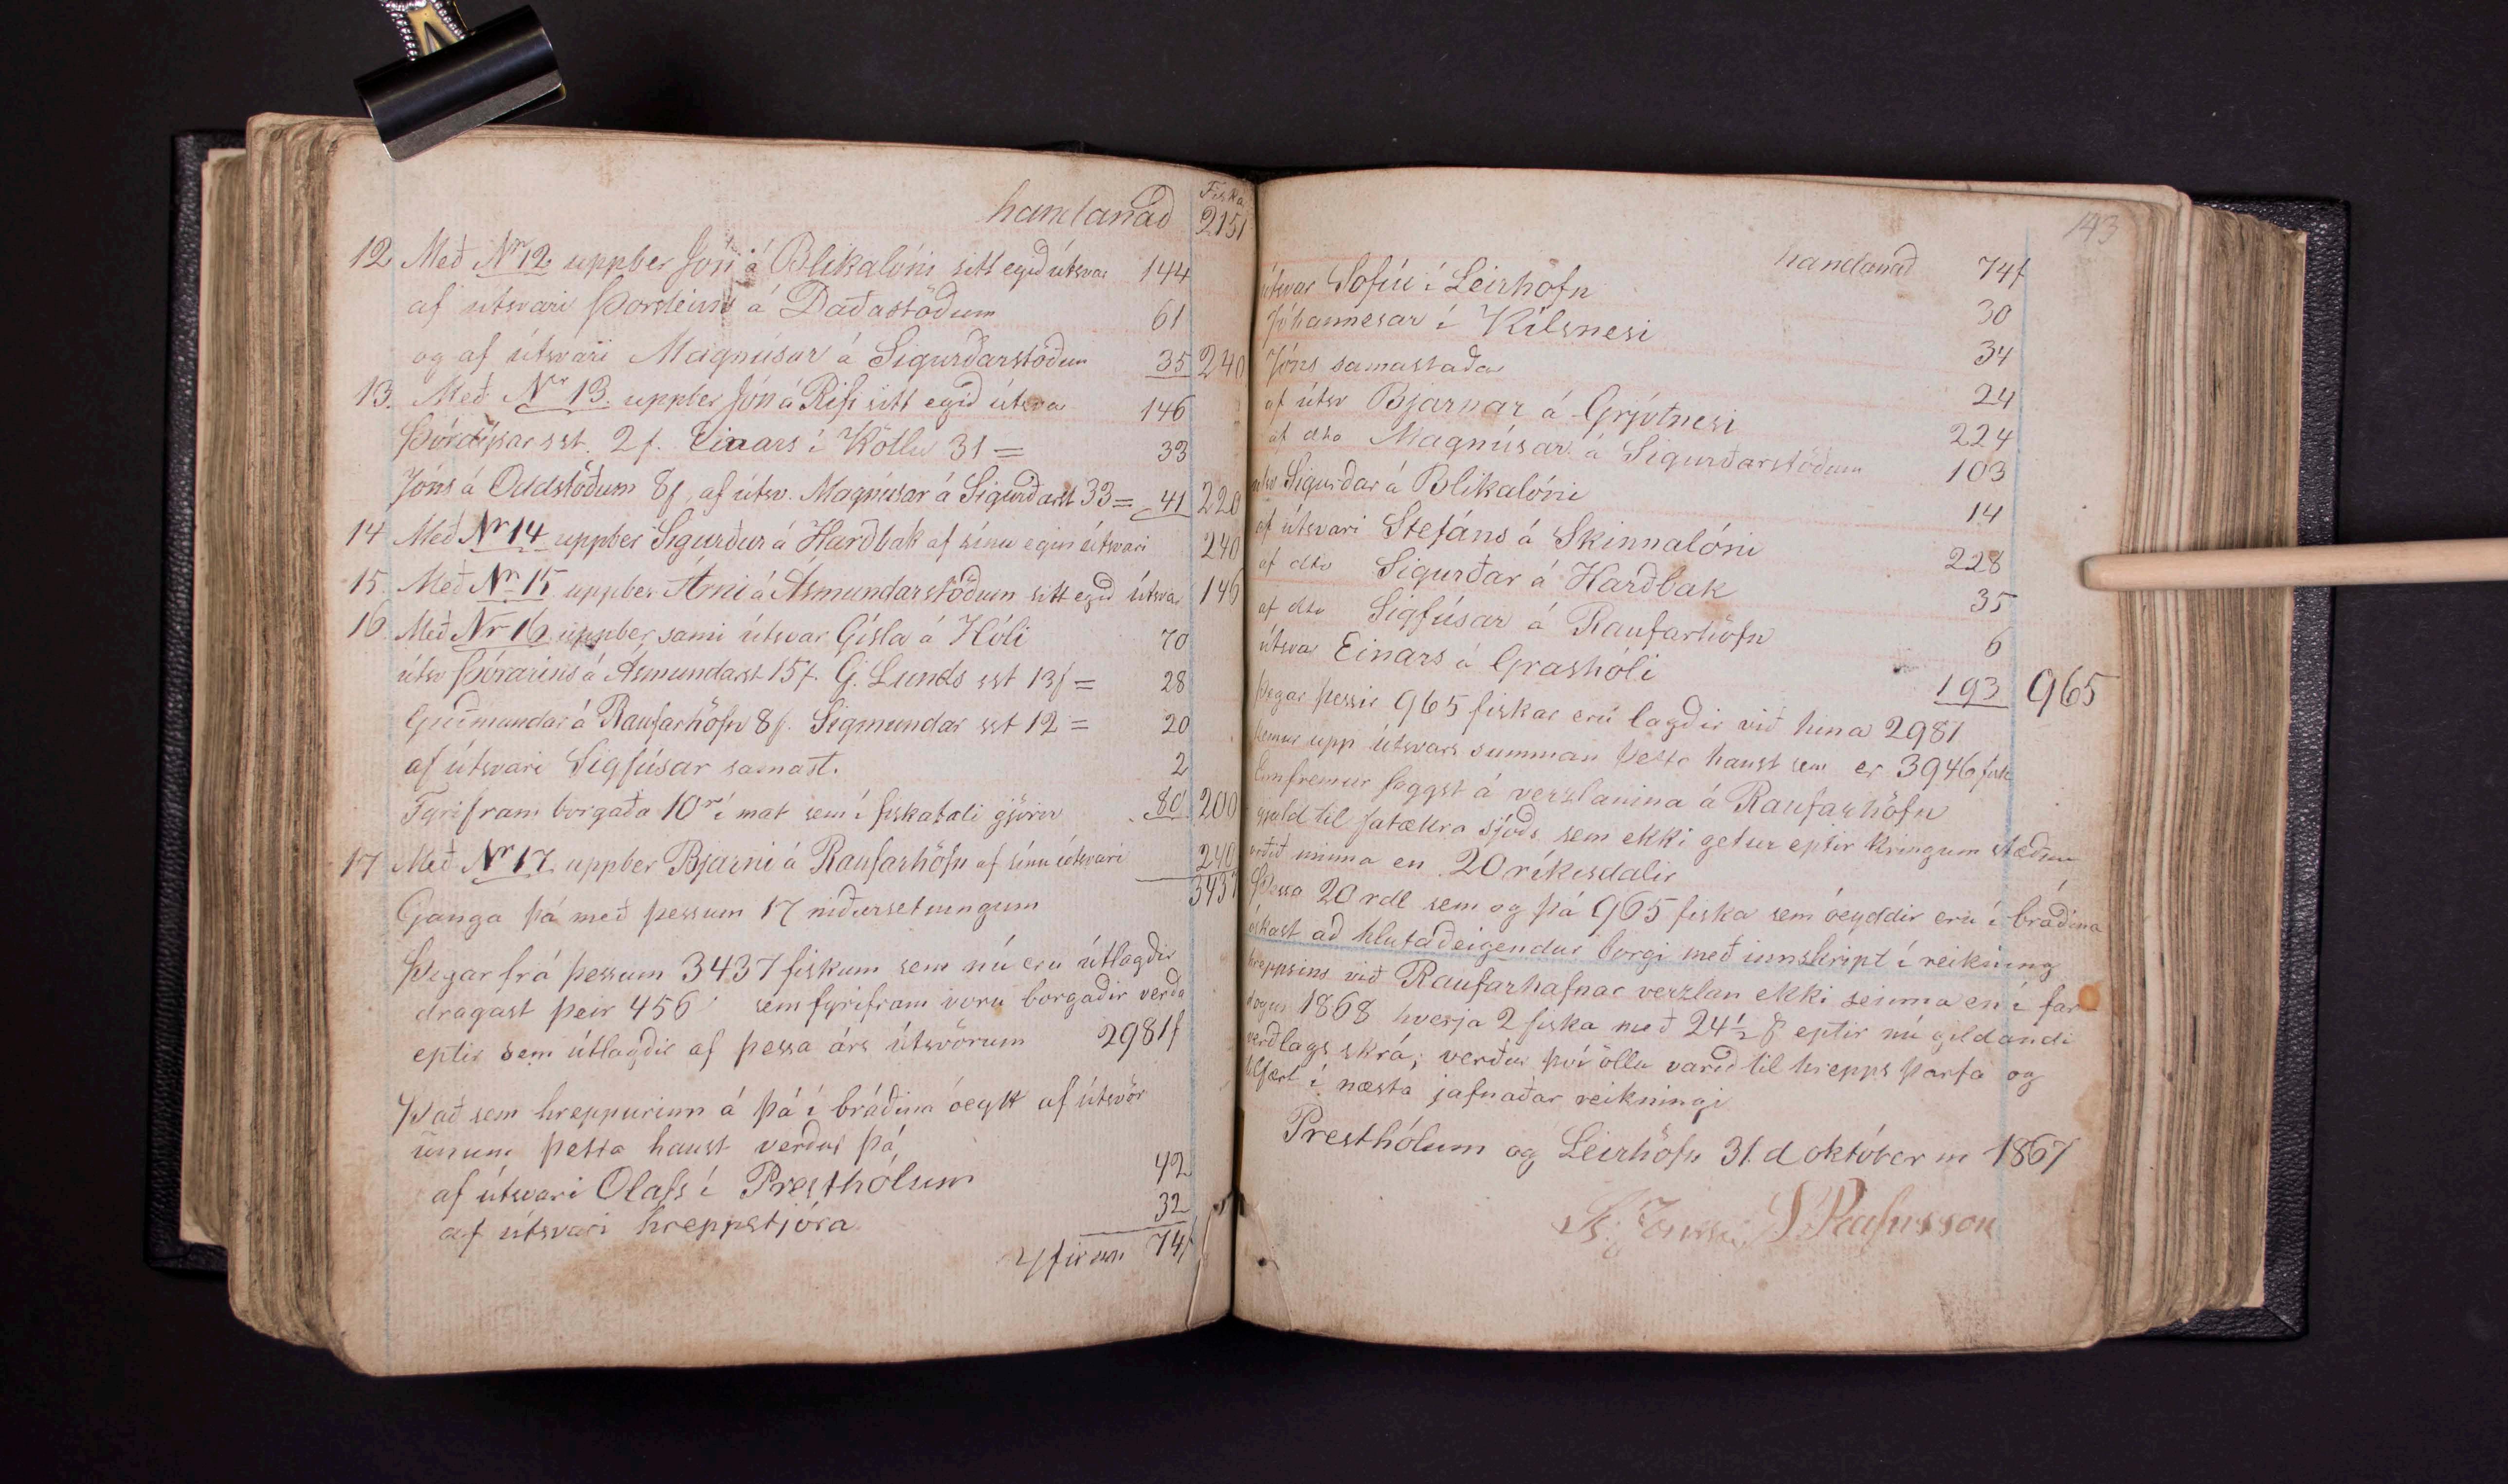 Fiska
handanað 2151
12 Með Nr 12 uppber Jón á Blikalóni sitt egið útsvar 144
af útsvari Þorsteins á Daðastöðum 61
og af útsvari Magnúsar á Sigurðarstöðum 35 240
13. Með Nr 13. uppber Jón á Rifi sitt egið útsvar 146
Þórdísar sst. 2 f. Einars í Kötlu 31 = 33
Jóns á Oddstöðum 8f, af útsv. Magnúsar á Sigurðarst 33 = 41 220
14 Með Nr 14 uppber Sigurður á Harðbak af sínu egin útsvari 240
15. Með Nr 15 uppber Árni á Ásmundarstöðum sitt egið útsvar 146
16. Með Nr 16. uppber sami útsvar Gísla á Hóli 70
útsv Þórarins á Ásmundarst 15f. G. Lunds sst 13f = 28
Guðmundar á Raufarhöfn 8f. Sigmundar sst 12 = 20
af útsvari Sigfúsar samast. 2
Fyrifram borgaða 10 rí mat sem í fiskatali gjörir 80 200
17 Með Nr 17. uppber Bjarni á Raufarhöfn af sínu útsvari 240
Ganga þá með þessum 17 niðursetningum 3437
Þegar frá þessum 3437 fiskum sem nú eru útlagðir
dragast þeir 456 sem fyrifram voru borgaðir verða
eptir sem útlagðir af þessa árs útsvörum 2981f
Það sem hreppurinn á þá í bráðina óeytt af útsvör
unum þetta haust verður þá
af útsvari Olafs í Presthólum 42
af útsvari hreppstjóra 32
Yfir um 74f
143
handanað 74f
útsvar Sofíu í Leirhöfn 30
Jóhannesar í Kílsnesi 34
Jóns samastaðar 24
af útsv Bjarnar á Grjótnesi 224
af dto Magnúsar á Sigurðarstöðum 103
útsv Sigurðar á Blikalóni 14
af útsvari Stefáns á Skinnalóni 228
af dto Sigurðar á Harðbak 35
af dto Sigfúsar á Raufarhöfn 6
útsvar Einars á Grashóli 193 965
Þegar þessir 965 fiskar eru lagðir við hina 2981
kemur upp útsvars summan þetta haust sem er 3946 fisk
Ennfremur leggst á verzlanina á Raufarhöfn
gjald til fátækra sjóðs sem ekki getur eptir kringum stæðum
orðið minna en 20 ríkisdalir
Þessa 20 rdl sem og þá 965 fiska sem óeyddir eru í bráðina
óskast að hlutaðeigendur borgi með innskript í reikning
hreppsins við Raufarhafnar verzlan ekki seinna en í far
dögum 1868 hverja 2 fiska með 24½ β eptir nú gildandi
verðlags skrá; verður því öllu varið til hrepps þarfa og
tilfært í næsta jafnaðar reikningi
Presthólum og Leirhöfn 31. d október m 1867
St: Jónsson J. Rafnsson